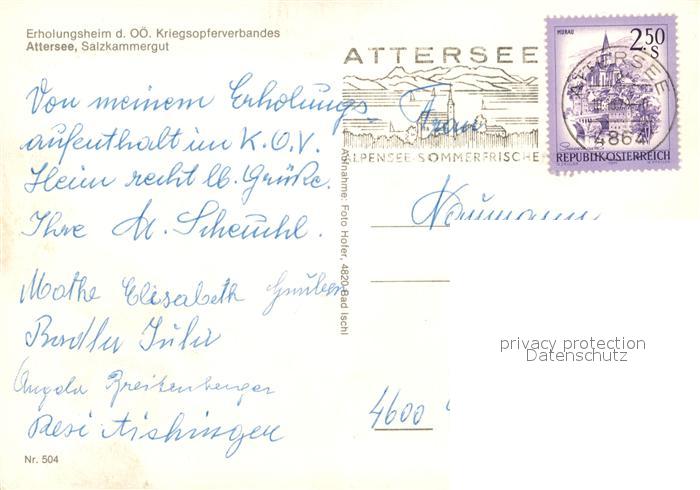 Erholungsheim d. OÖ. Kriegsopferverbandes
Attersee, Salzkammergut
Von meinem Erholungs-
aufenthalt im K.O.V.
Heim recht lb. Grüße.
Ihre M. Scheuhl.
Mathe Elisabeth Gruber
Julia
Angela Breitenberger
Resi Aishinger
Nr. 504
Aufnahme: Foto Hofer, 4820 Bad Ischl
ATTERSEE
ALPENSEE-SOMMERFRISCHE
MURAU
2.50
S
ATTERSEE
4864
REPUBLIK ÖSTERREICH
Frau
Naumann
4600
privacy protection
Datenschutz